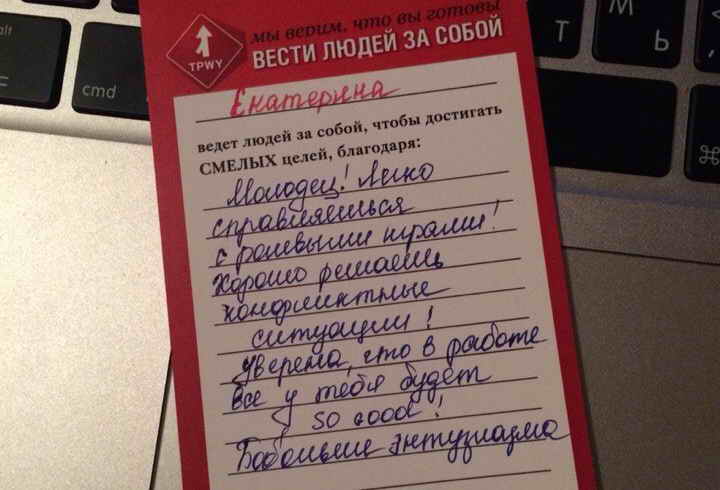 alt
cmd
М
Ь
⌘
мы верим, что вы готовы
ВЕСТИ ЛЮДЕЙ ЗА СОБОЙ
TPWY
Екатерина
ведет людей за собой, чтобы достигать
СМЕЛЫХ целей, благодаря:
Молодец! Легко
справляешься
с ролевыми играми!
Хорошо решаешь
конфликтные
ситуации!
Уверена, что в работе
все у тебя будет
so good!
Побольше энтузиазма